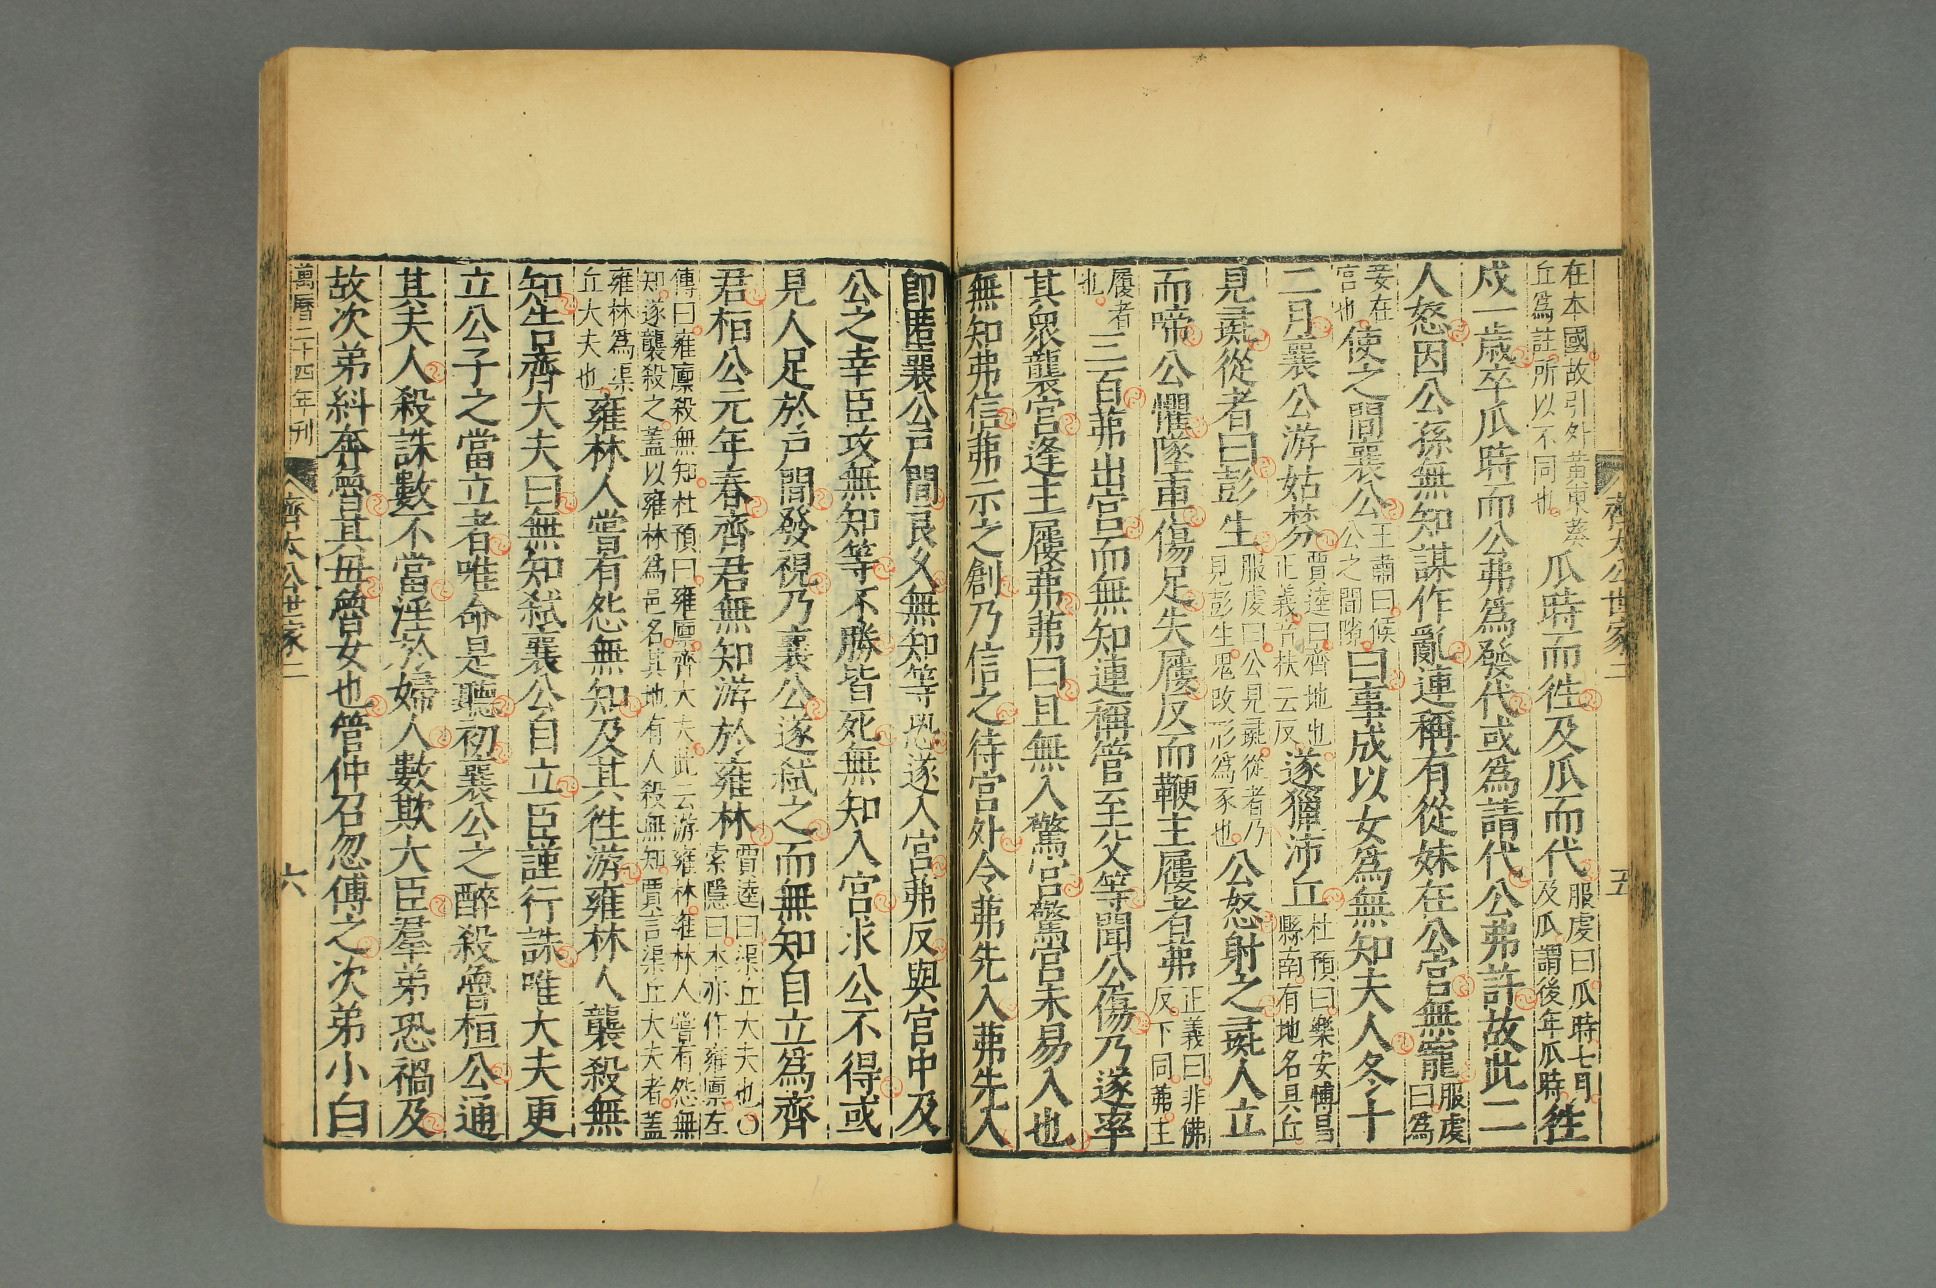 齊太公世家二 五
在本國故引外黃東葵丘爲註所以不同也瓜時而往及瓜而代服虔曰瓜時七月及瓜謂後年瓜時往
戍一歲卒瓜時而公弗爲發代或爲請代公弗許故此二
人怒因公孫無知謀作亂連稱有從妹在公宮無寵服虔曰爲
妾在宮也使之間襄公王肅曰候公之間隙曰事成以女爲無知夫人冬十
二月襄公游姑棼賈逵曰齊地也正義棼扶云反遂獵沛丘杜預曰樂安博昌縣南有地名貝丘
見彘從者曰彭生服虔曰公見彘從者乃見彭生鬼改形爲豕也公怒射之彘人立
而啼公懼墜車傷足失屨反而鞭主屨者茀正義曰非佛反下同茀主
屨者也三百茀出宮而無知連稱管至父等聞公傷乃遂率
其眾襲宮逢主屨茀茀曰且無入驚宮驚宮未易入也
無知弗信茀示之創乃信之待宮外令茀先入茀先入
即匿襄公戶間良久無知等恐遂入宮茀反與宮中及
公之幸臣攻無知等不勝皆死無知入宮求公不得或
見人足於戶間發視乃襄公遂弒之而無知自立爲齊
君桓公元年春齊君無知游於雍林賈逵曰渠丘大夫也○索隱曰本亦作雍廩左
傳曰雍廩殺無知杜預曰雍廩齊大夫此云游雍林雍林人嘗有怨無知遂襲殺之蓋以雍林爲邑名其地有人殺無知賈言渠丘大夫者蓋
雍林爲渠丘大夫也雍林人嘗有怨無知及其往游雍林人襲殺無
知告齊大夫曰無知弒襄公自立臣謹行誅唯大夫更
立公子之當立者唯命是聽初襄公之醉殺魯桓公通
其夫人殺誅數不當淫於婦人數欺大臣羣弟恐禍及
故次弟糾奔魯其母魯女也管仲召忽傅之次弟小白
萬曆二十四年刊 齊太公世家二 六